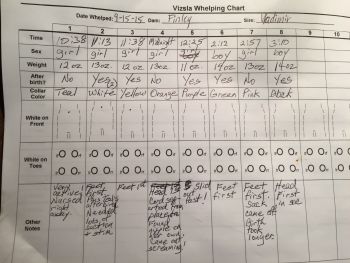 Vizsla Whelping Chart
Date Whelped: 9-15-15 Dam: Finley Sire: Vladimir
1 2 3 4 5 6 7 8 9 10
Time 10:38 11:13 11:38 Midnight 12:25 2:12 2:57 3:10
Sex girl girl girl girl boy boy girl boy
Weight 12 oz 13oz 12 oz 13oz 11 oz. 14 oz 13oz 14oz
After birth? No Yes Yes No Yes Yes No Yes
Collar Color Teal White Yellow Orange Purple Green Pink Black
White on Front
White on Toes
Other Notes
Very active. Nursed right away.
Feet first. Needed lots of suction + stim
Feet 1st
Head Cord separated from placenta Found nipple on her own. Came out screaming!
Slid out fast!
Feet first
Feet first. Sack came off. Birth took longer.
Head first in sac